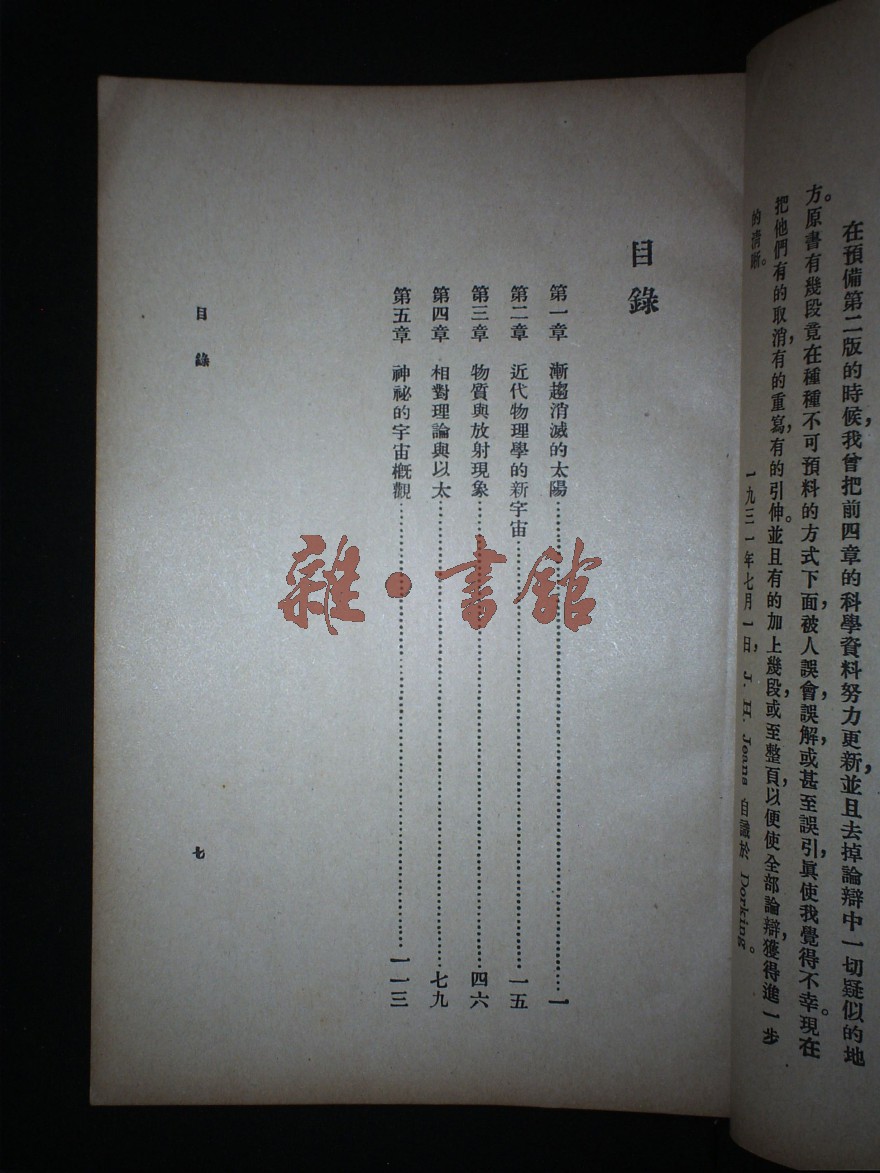 在預備第二版的時候，我曾把前四章的科學資料努力更新，並且去掉論辯中一切疑似的地
方。原書有幾段竟在種種不可預料的方式下面，被人誤會，誤解，或甚至誤引，眞使我覺得不幸。現在
把他們有的取消，有的重寫，有的引伸。並且有的加上幾段，或至整頁，以便使全部論辯，獲得進一步
的淸晰。
一九三一年七月一日，J. H. Jeans 自識於 Dorking。
目錄
第一章 漸趨消滅的太陽……一
第二章 近代物理學的新宇宙……一五
第三章 物質與放射現象……四六
第四章 相對理論與以太……七九
第五章 神祕的宇宙槪觀……一一三
目錄
七
雜·書館